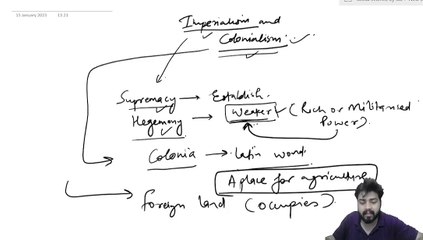 31 January 2025 13:23
Imperialism and
Colonialism.
Supremacy → Establish.
Hegemony → Weaker (Rich or Militarised
Power).
Colonia → Latin word
A place for agriculture
foreign land (occupies)